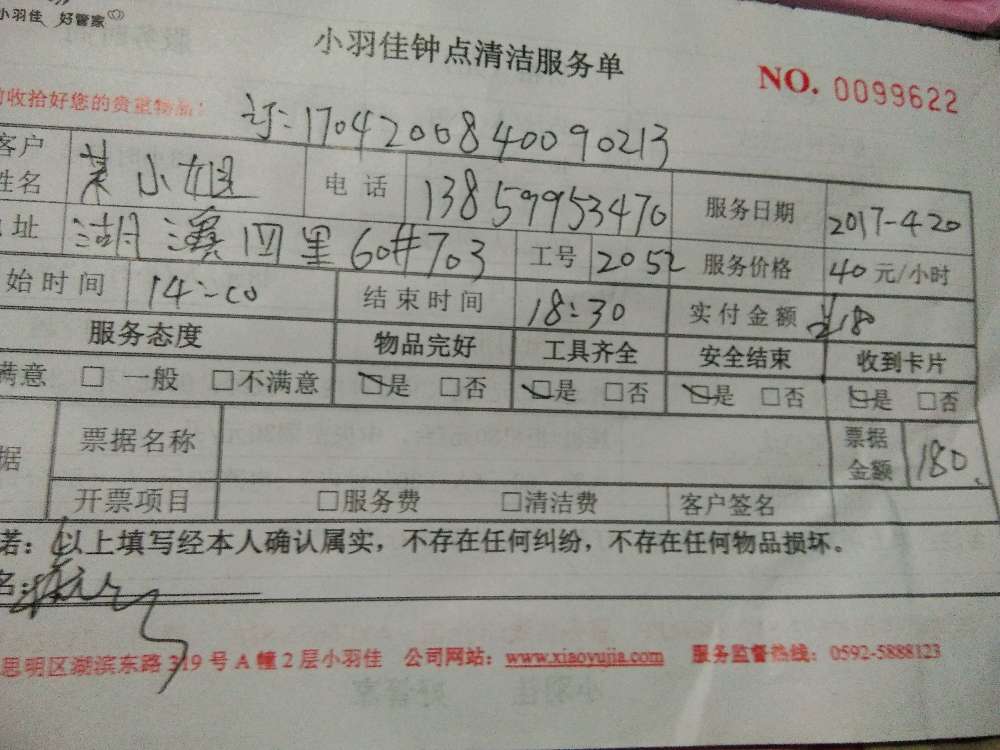 小羽佳 好管家
小羽佳钟点清洁服务单
NO. 0099622
收拾好您的贵重物品:
订:1704200840090213
客户姓名 小姐 电话 13859953470 服务日期 2017-4.20
址 湖溪四里60#703 工号 2052 服务价格 40元/小时
始时间 14:00 结束时间 18:30 实付金额 ¥18
服务态度 物品完好 工具齐全 安全结束 收到卡片
满意 □一般 □不满意 □是 □否 □是 □否 □是 □否 □是 □否
据 票据名称 票据金额 180
开票项目 □服务费 □清洁费 客户签名
诺:以上填写经本人确认属实,不存在任何纠纷,不存在任何物品损坏。
名:
思明区湖滨东路319号A幢2层小羽佳 公司网站:www.xiaoyujia.com 服务监督热线:0592-5888123